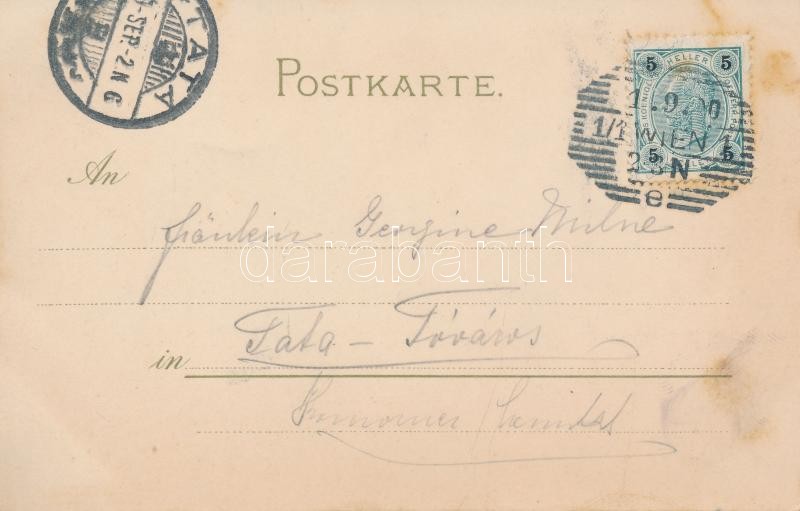 TATA
SEP. 2 N 6
POSTKARTE.
5 HELLER 5
5 5
1.9.00
1/1 WIEN 1
2-3 N
e
An
Fräulein Georgine Milne
darabanth
in Tata – Tóváros
Komorner Comitat